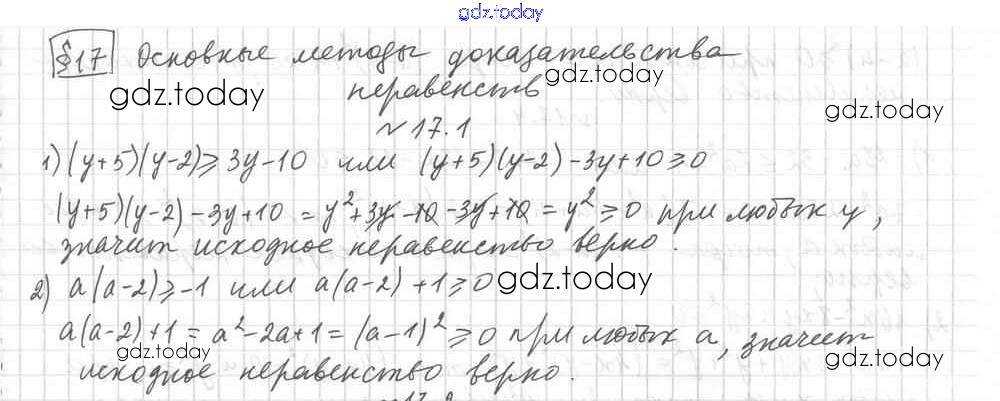 gdz.today
§17 Основные методы доказательства
gdz.today
неравенств
gdz.today
gdz.today
№17.1
1) (y+5)(y-2)≥3y-10 или (y+5)(y-2)-3y+10≥0
(y+5)(y-2)-3y+10=y²+3y-10-3y+10=y²≥0 при любых y,
значит исходное неравенство верно.
gdz.today
2) a(a-2)≥-1 или a(a-2)+1≥0
gdz.today
a(a-2)+1=a²-2a+1=(a-1)²≥0 при любых a, значит
gdz.today
gdz.today
исходное неравенство верно.